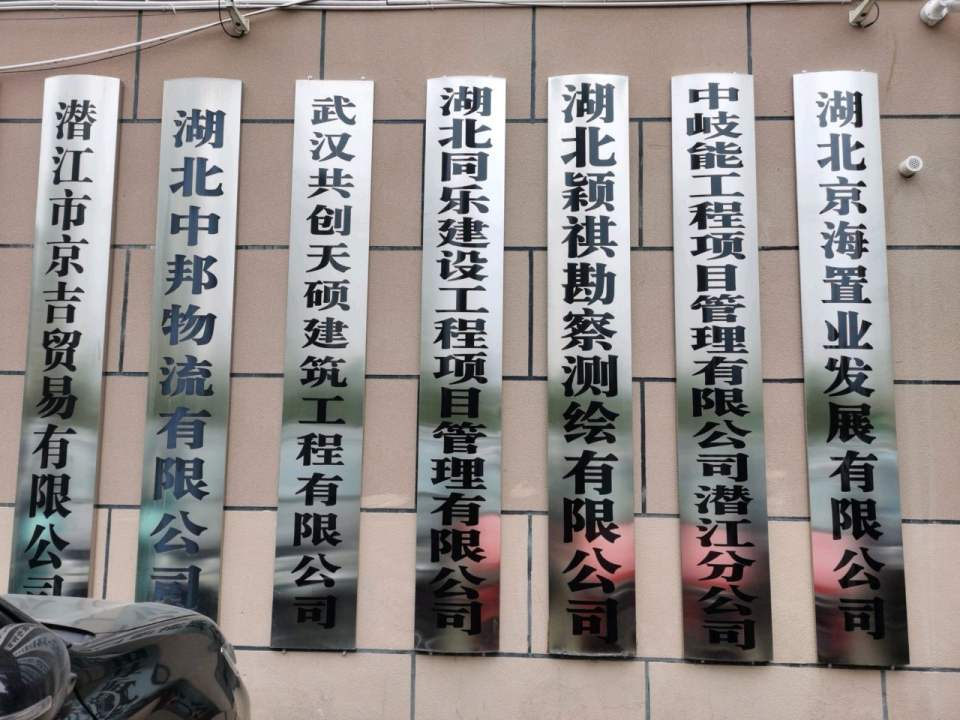 潜江市京吉贸易有限公司
湖北中邦物流有限公司
武汉共创天硕建筑工程有限公司
湖北同乐建设工程项目管理有限公司
湖北颖祺勘察测绘有限公司
中岐能工程项目管理有限公司潜江分公司
湖北京海置业发展有限公司